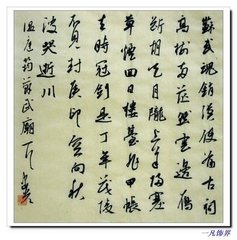 蘇武魂銷漢使前古祠
高樹兩茫然雲邊雁
斷胡天月隴上羊歸塞
草煙回日樓臺非甲帳
去時冠劍是丁年茂陵
不見封侯印空向秋
波哭逝川
温庭筠蘇武廟
一凡饰界